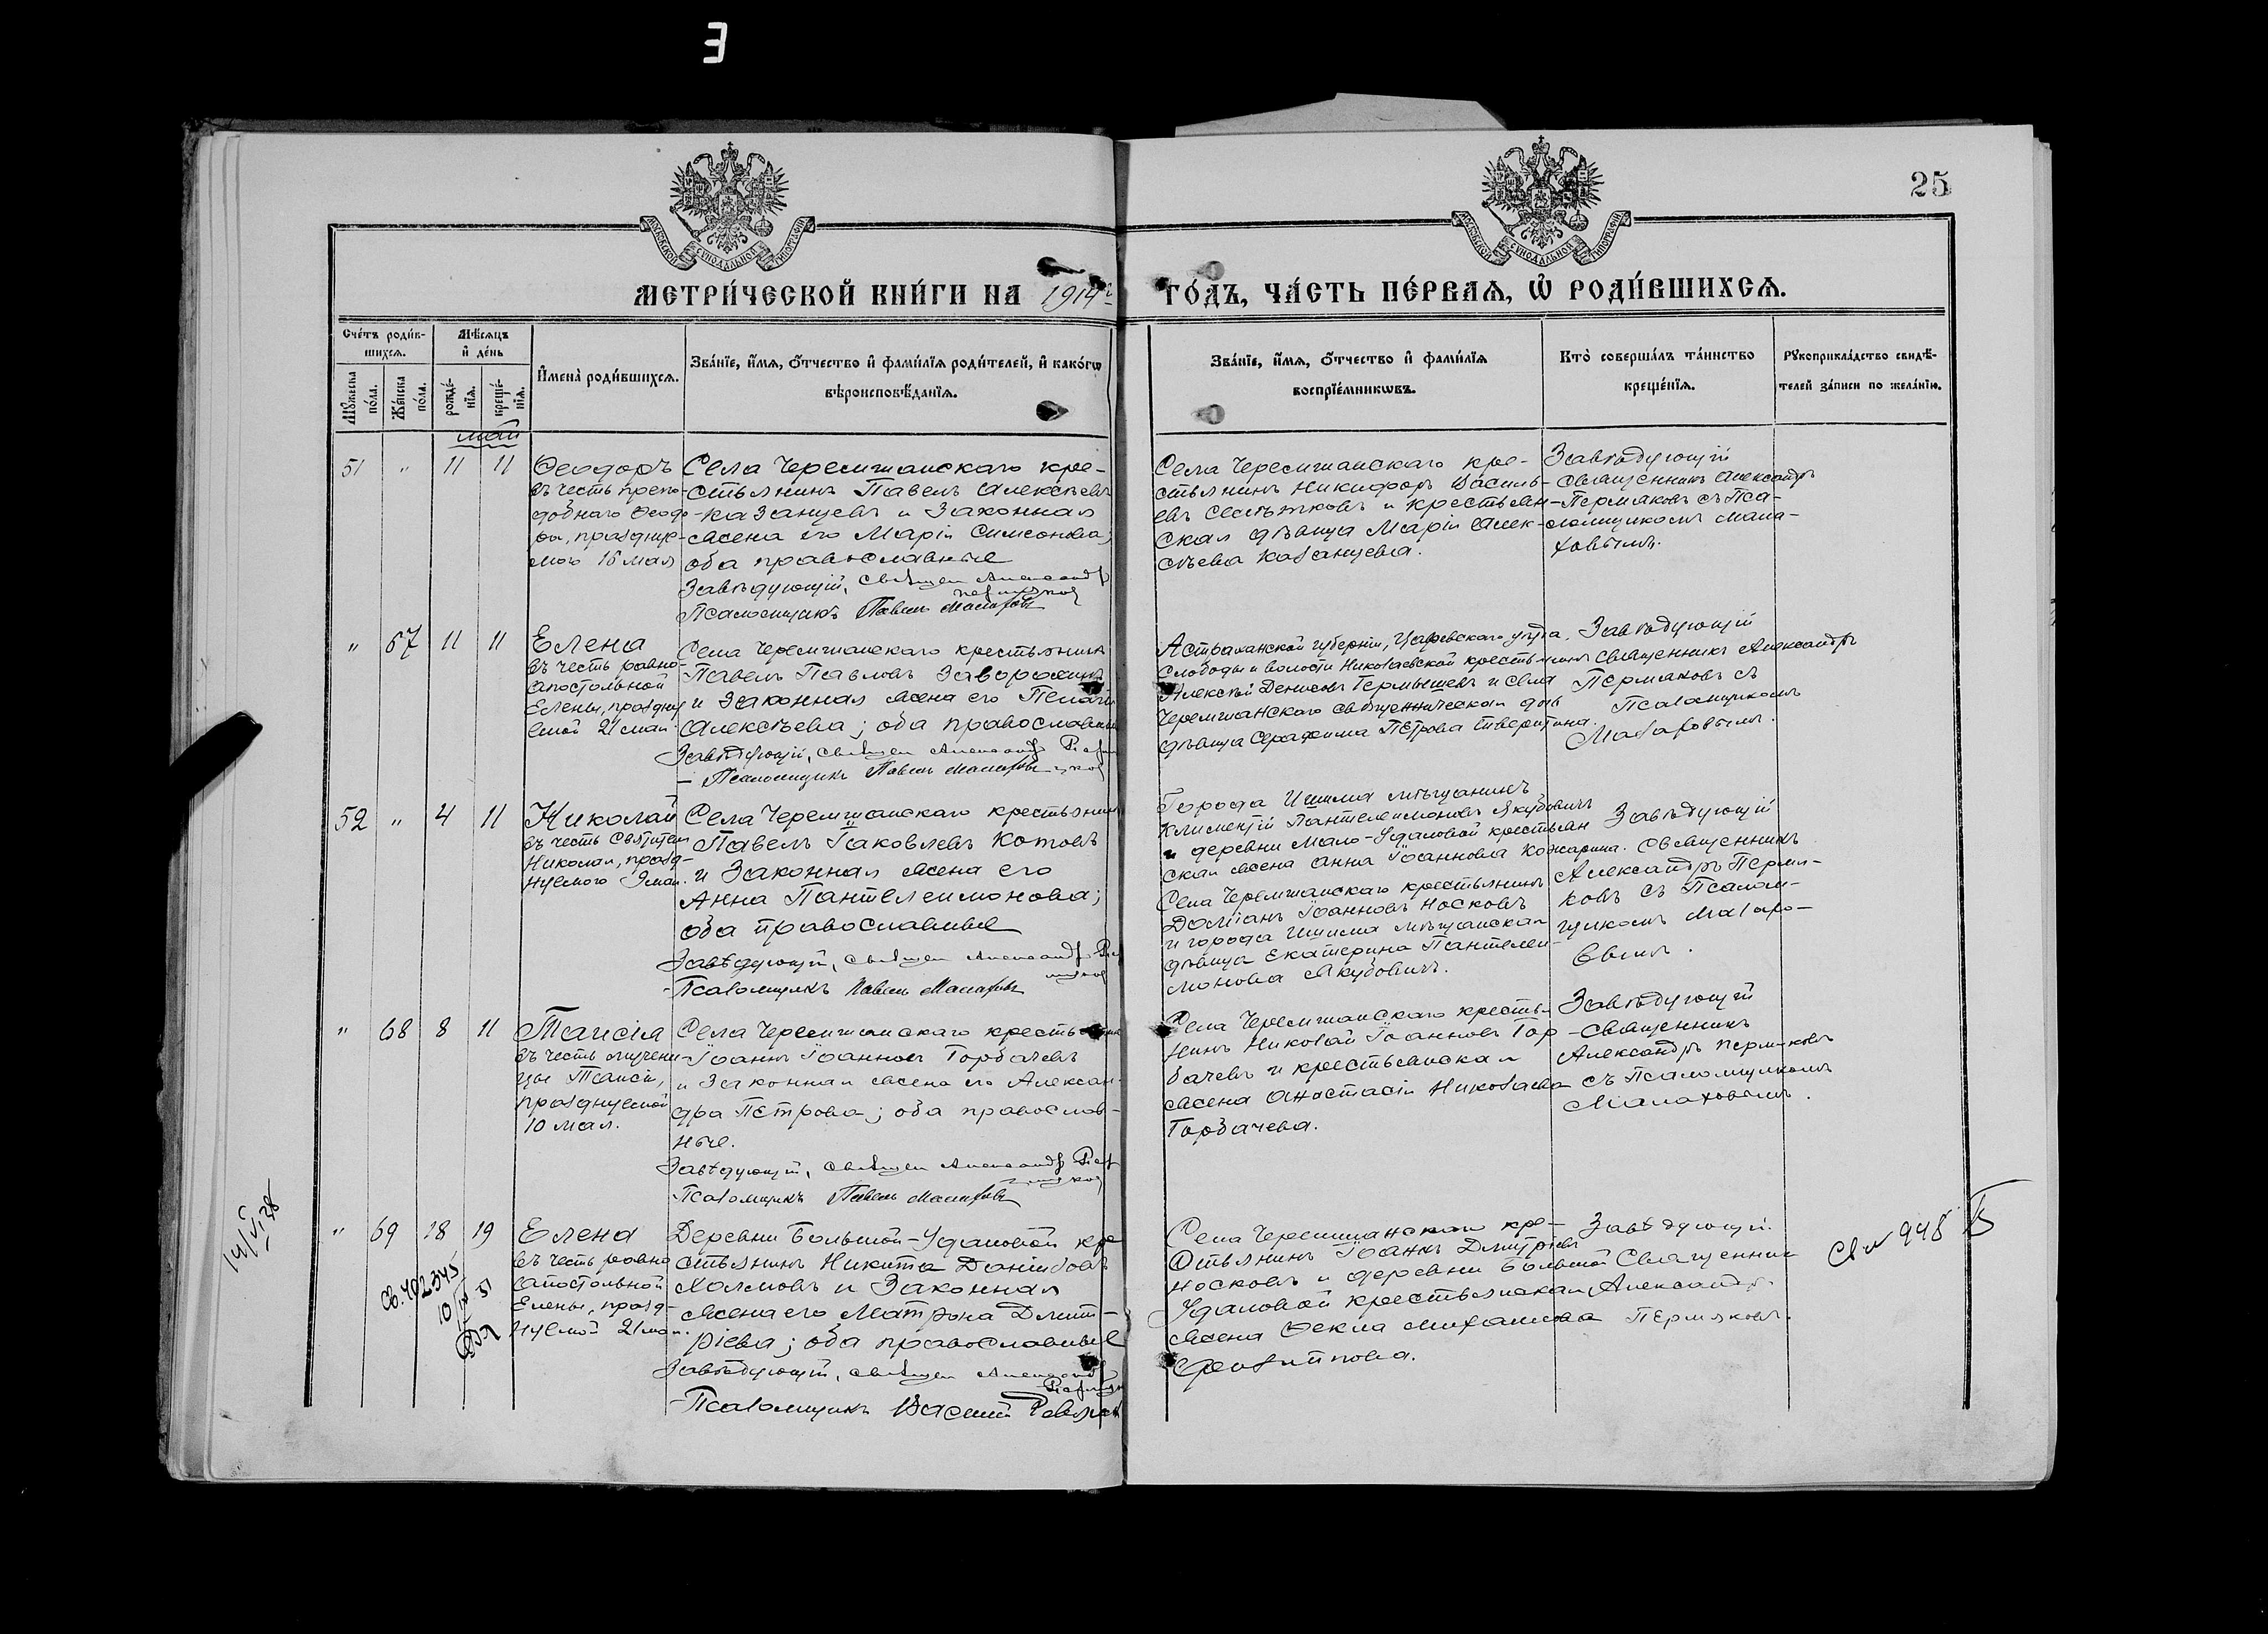 25
МОСКОВСКОЙ СѴНОДАЛЬНОЙ ТИПОГРАФІИ
МОСКОВСКОЙ СѴНОДАЛЬНОЙ ТИПОГРАФІИ
МЕТРИ́ЧЕСКОЙ КНИ́ГИ НА 1914 г ГО́ДЪ, ЧА́СТЬ ПЕ́РВАЯ, Ѽ РОДИ́ВШИХСЯ.
Сче́тъ роди́в-
шихся.
Мѣ́сяцъ
и҆ де́нь
Мꙋ́жеска
по́ла.
Же́нска
по́ла.
рожде́-
нїя.
креще́-
нїя.
И҆мена̀ роди́вшихся.
Зва́нїе, и҆́мя, ѻ҆́тчество и҆ фами́лїя роди́телей, и҆ како́гѡ
вѣроисповѣ́данїя.
Зва́нїе, и҆́мя, ѻ҆́тчество и҆ фами́лїя
воспрїе́мникѡвъ.
Кто̀ соверша́лъ та́инство
креще́нїя.
Рꙋкоприкла́дство свидѣ́-
телей за́писи по жела́нїю.
май
51 " 11 11
Ѳеодоръ
въ честь препо-
добнаго Ѳеодо-
ра, праздну-
мого 16 мая
Села Черемшанскаго кре-
стьянинъ Павелъ Алексѣевъ
Казанцевъ и законная
жена его Марія Симеонова;
оба православные
Завѣдующій, священ Александр
Псаломщикъ Павелъ Малаховъ
Села Черемшанскаго кре-
стьянинъ Никифоръ Василь-
евъ и крестьян-
ская дѣвица Марія Алек-
сѣева Казанцева.
Завѣдующій
Священникъ Александръ
Пермяковъ съ Пса-
ломщикомъ Мала-
ховымъ.
" 67 11 11
Елена
въ честь равно-
апостольной
Елены, праздну
емой 21 мая.
Села Черемшанскаго крестьянинъ
Павелъ Павловъ
и законная жена его Пелагія
Алексѣева; оба православные
Завѣдующій, священ Александр
Псаломщикъ Павелъ Малаховъ
Астраханской губерніи, Царевскаго уѣзда,
Слободы и волости Николаевской крестьянинъ
Алексѣй Денисовъ и села
Черемшанскаго священническая дочь
дѣвица Серафима Петрова Тверитина.
Завѣдующій
Священникъ Александръ
Пермяковъ съ
Псаломщикомъ
Малаховымъ.
52 " 4 11
Николай
въ честь Святителя
Николая, празд-
нуемого 9 мая.
Села Черемшанскаго крестьянинъ
Павелъ Іаковлевъ Котовъ
и законная жена его
Анна Пантелеимонова;
оба православные
Завѣдующій, священ Александр
Псаломщикъ Павелъ Малаховъ
Города Ишима мѣщанинъ
Климентій Пантелеимоновъ Якубовичъ
и деревни Мало-Удаловой крестьян
ская жена Анна Іоаннова Кожарина.
Села Черемшанскаго крестьянинъ
Доміанъ Іоанновъ Носковъ
и города Ишима мѣщанская
дѣвица Екатерина Пантелеи-
монова Якубовичъ.
Завѣдующій
Священникъ
Александръ Пермя-
ковъ съ Псалом-
щикомъ Малахо-
вымъ.
" 68 8 11
Таисія
въ честь мучени-
цы Таисіи,
празднуемой
10 мая.
Села Черемшанскаго крестьянинъ
Іоаннъ Іоанновъ Горбачевъ
и законная жена его Алексан-
дра Петрова; оба православ-
ные.
Завѣдующій, священ Александр
Псаломщикъ Павелъ Малаховъ
Села Черемшанскаго крестья-
нинъ Николай Іоанновъ Гор-
бачевъ и крестьянская
жена Анастасія Николаева
Горбачева.
Завѣдующій
Священникъ
Александръ Пермяковъ
съ Псаломщикомъ
Малаховымъ.
" 69 18 19
Елена
въ честь равно
апостольной
Елены, празд-
нуемой 21 мая.
Деревни Большой-Удаловой кре
стьянинъ Никита Даніиловъ
Холмовъ и законная
жена его Матрона Димит-
ріева; оба православные
Завѣдующій, священ Александр
Псаломщикъ Василій
Села Черемшанскаго кре-
стьянинъ Іоаннъ Димитріевъ
Носковъ и деревни Большой
Удаловой крестьянская
жена Ѳекла Михаилова
Завѣдующій
Священник
Александръ
Пермяковъ.
Св. 402345